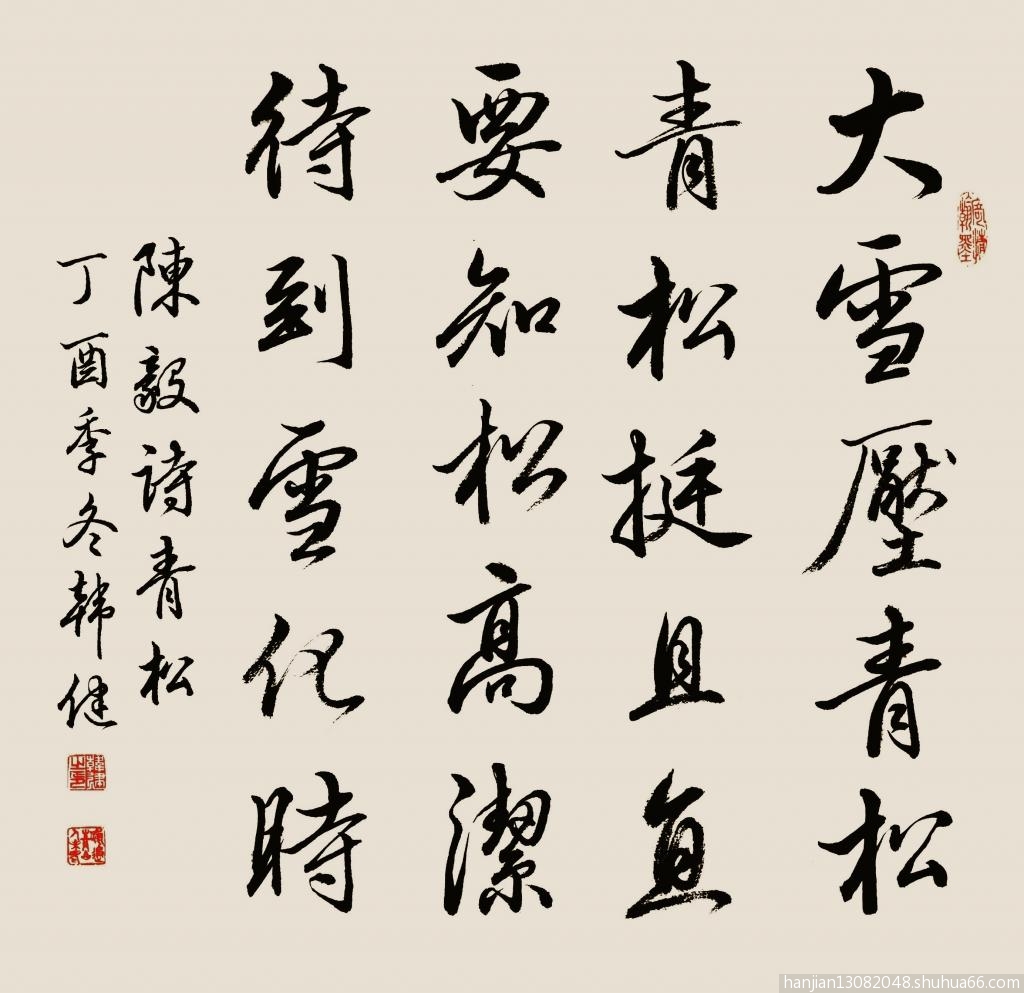 大雪壓青松
青松挺且直
要知松高潔
待到雪化時
陳毅詩青松
丁酉季冬韩健
hanjian13082048.shuhua66.com